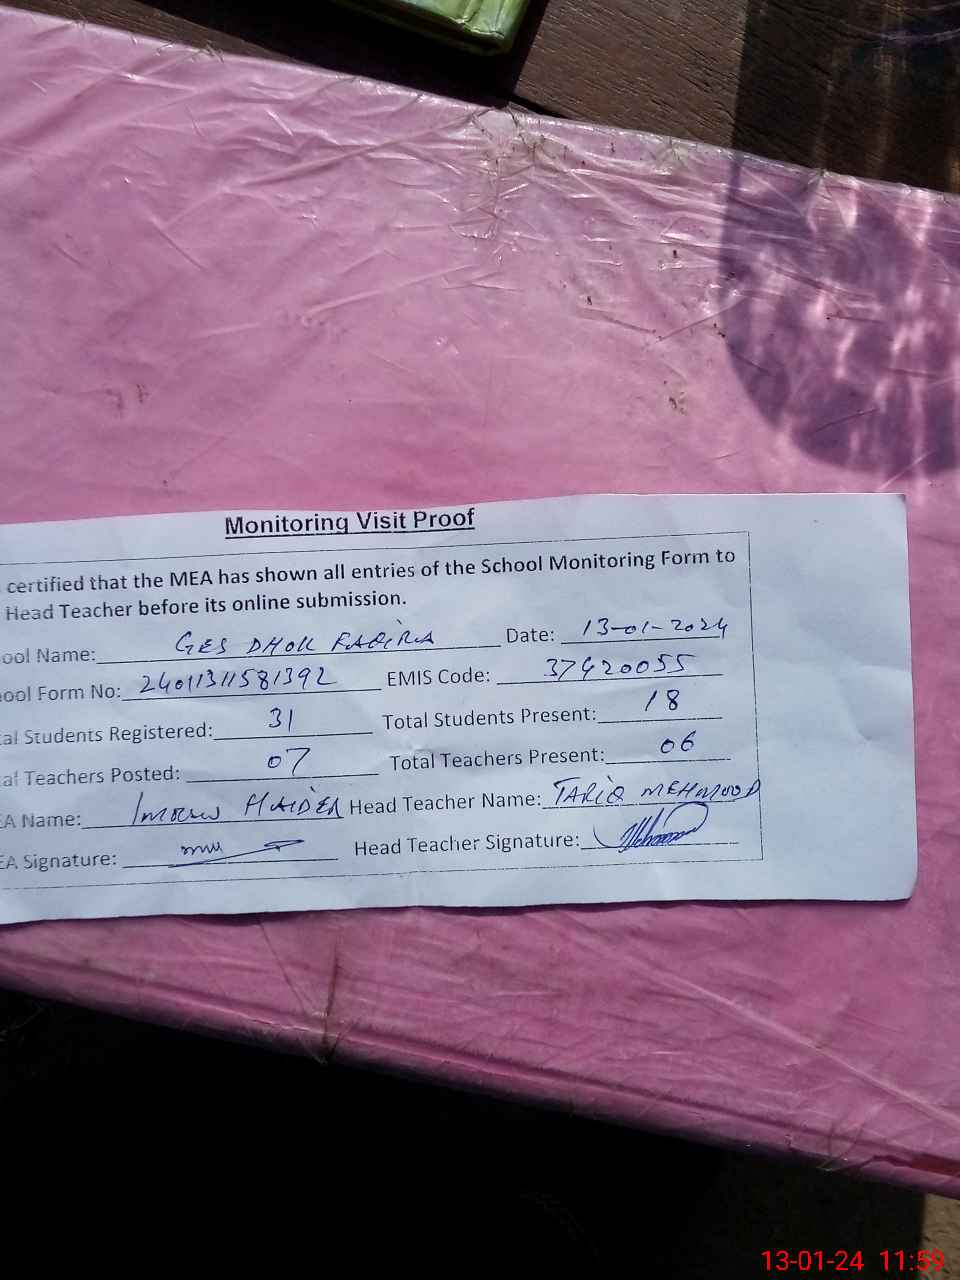 Monitoring Visit Proof
certified that the MEA has shown all entries of the School Monitoring Form to
Head Teacher before its online submission.
ool Name: GES DHOK FAQIRA Date: 13-01-2024
ool Form No: 24011311581392 EMIS Code: 37420055
al Students Registered: 31 Total Students Present: 18
al Teachers Posted: 07 Total Teachers Present: 06
EA Name: Imran HAIDER Head Teacher Name: TARIQ MEHMOOD
EA Signature: Head Teacher Signature:
13-01-24 11:59